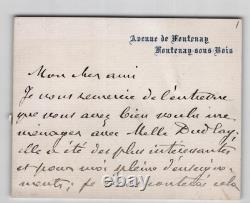 1
Avenue de Fontenay
Fontenay-sous-Bois
Mon cher ami
Je vous remercie de l'entretien
que vous avez bien voulu me
ménager avec Melle Dudlay,
elle a été des plus intéressantes
et pour moi pleine d'enseigne-
ments; je